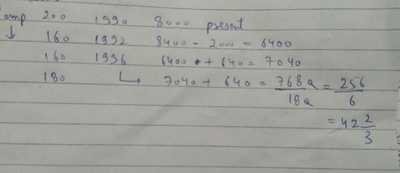 amp 200 1990 8000 present
↓ 160 1992 8400 - 2000 = 6400
160 1996 6400 + 640 = 7040
180 ↳ 7040 + 640 = 7680/180 = 256/6
= 42 2/3